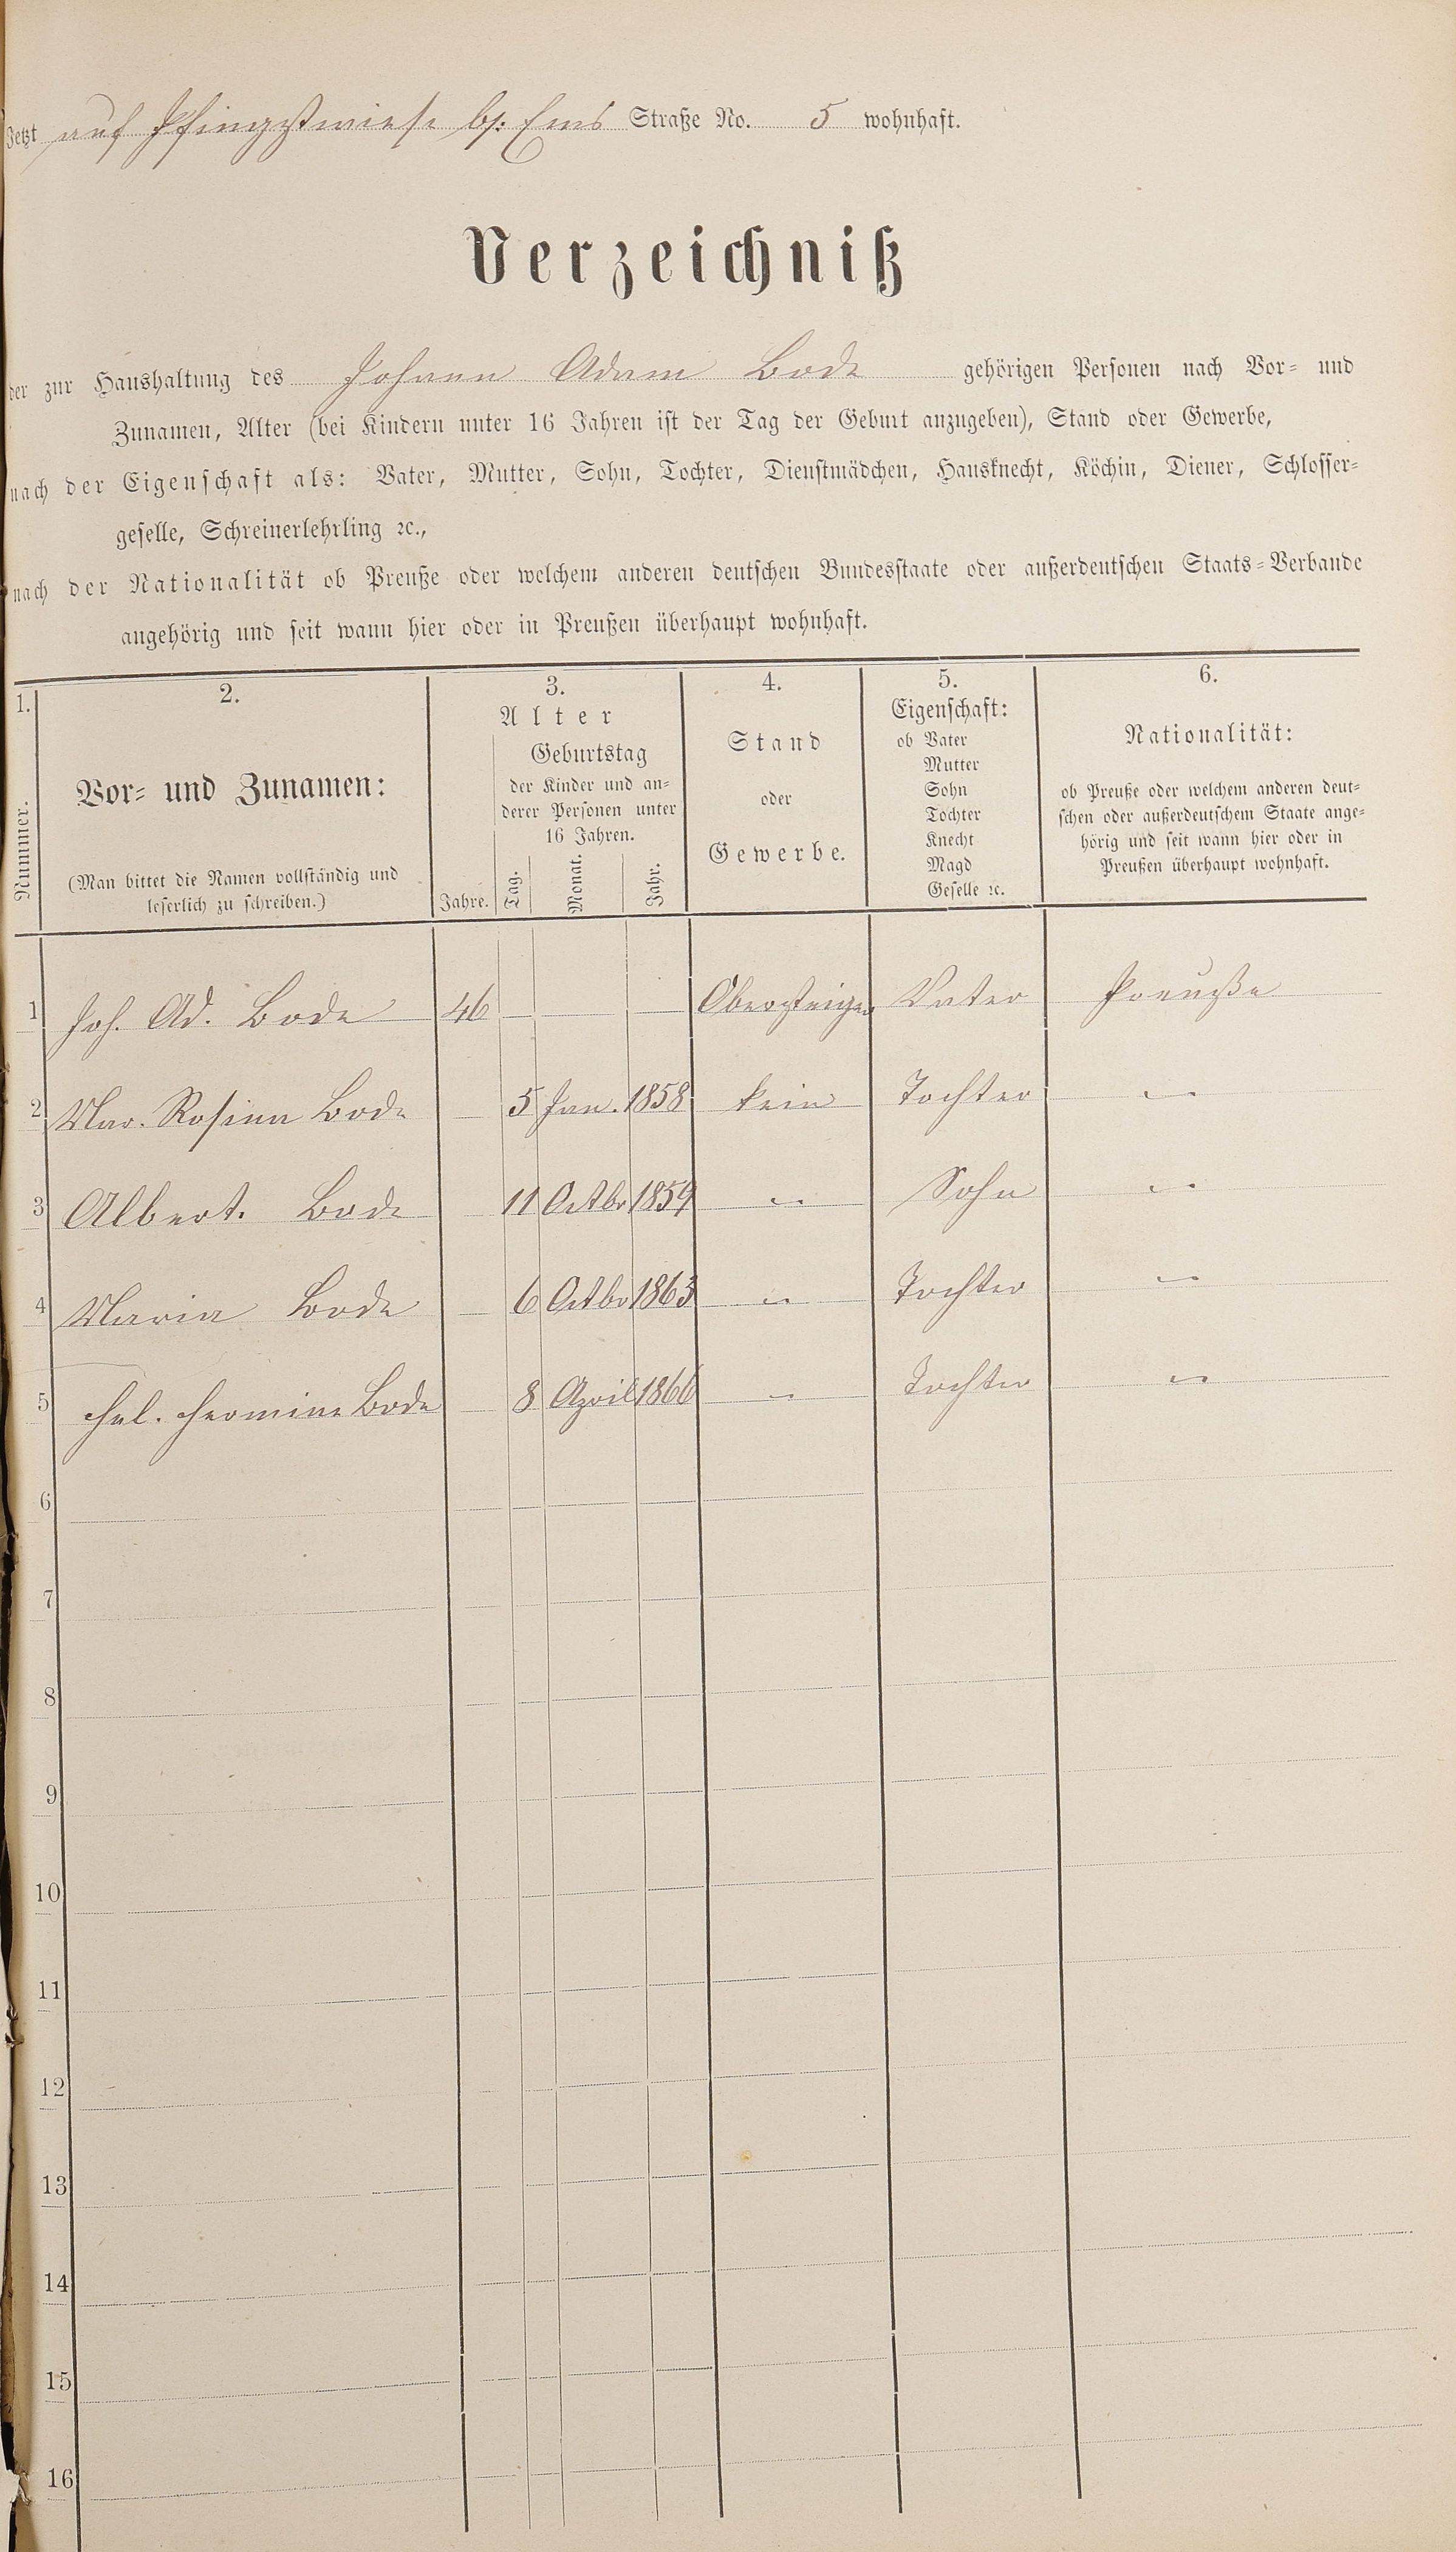 Jetzt auf Pfingstwiese bj: Ems Straße No. 5 wohnhaft.
Verzeichniß
der zur Haushaltung des Johann Adam Bode gehörigen Personen nach Vor- und
Zunamen, Alter (bei Kindern unter 16 Jahren ist der Tag der Geburt anzugeben), Stand oder Gewerbe,
nach der Eigenschaft als: Vater, Mutter, Sohn, Tochter, Dienstmädchen, Hausknecht, Köchin, Diener, Schlosser-
geselle, Schreinerlehrling ꝛc.,
nach der Nationalität ob Preuße oder welchem anderen deutschen Bundesstaate oder außerdeutschen Staats-Verbande
angehörig und seit wann hier oder in Preußen überhaupt wohnhaft.
1.
Nummer.
2.
Vor- und Zunamen:
(Man bittet die Namen vollständig und
leserlich zu schreiben.)
3.
Alter
Jahre.
Geburtstag
der Kinder und an-
derer Personen unter
16 Jahren.
Tag. Monat. Jahr.
4.
Stand
oder
Gewerbe.
5.
Eigenschaft:
ob Vater
Mutter
Sohn
Tochter
Knecht
Magd
Geselle ꝛc.
6.
Nationalität:
ob Preuße oder welchem anderen deut-
schen oder außerdeutschem Staate ange-
hörig und seit wann hier oder in
Preußen überhaupt wohnhaft.
1 Joh. Ad. Bode 46 Obersteiger Vater Preuße
2 Mar. Rosina Bode 5 Jan. 1858 kein Tochter "
3 Albert. Bode 11 Octbr 1859 " Sohn "
4 Maria Bode 6 Octbr 1863 " Tochter "
5 Hermine Bode 8 April 1866 " Tochter "
6
7
8
9
10
11
12
13
14
15
16